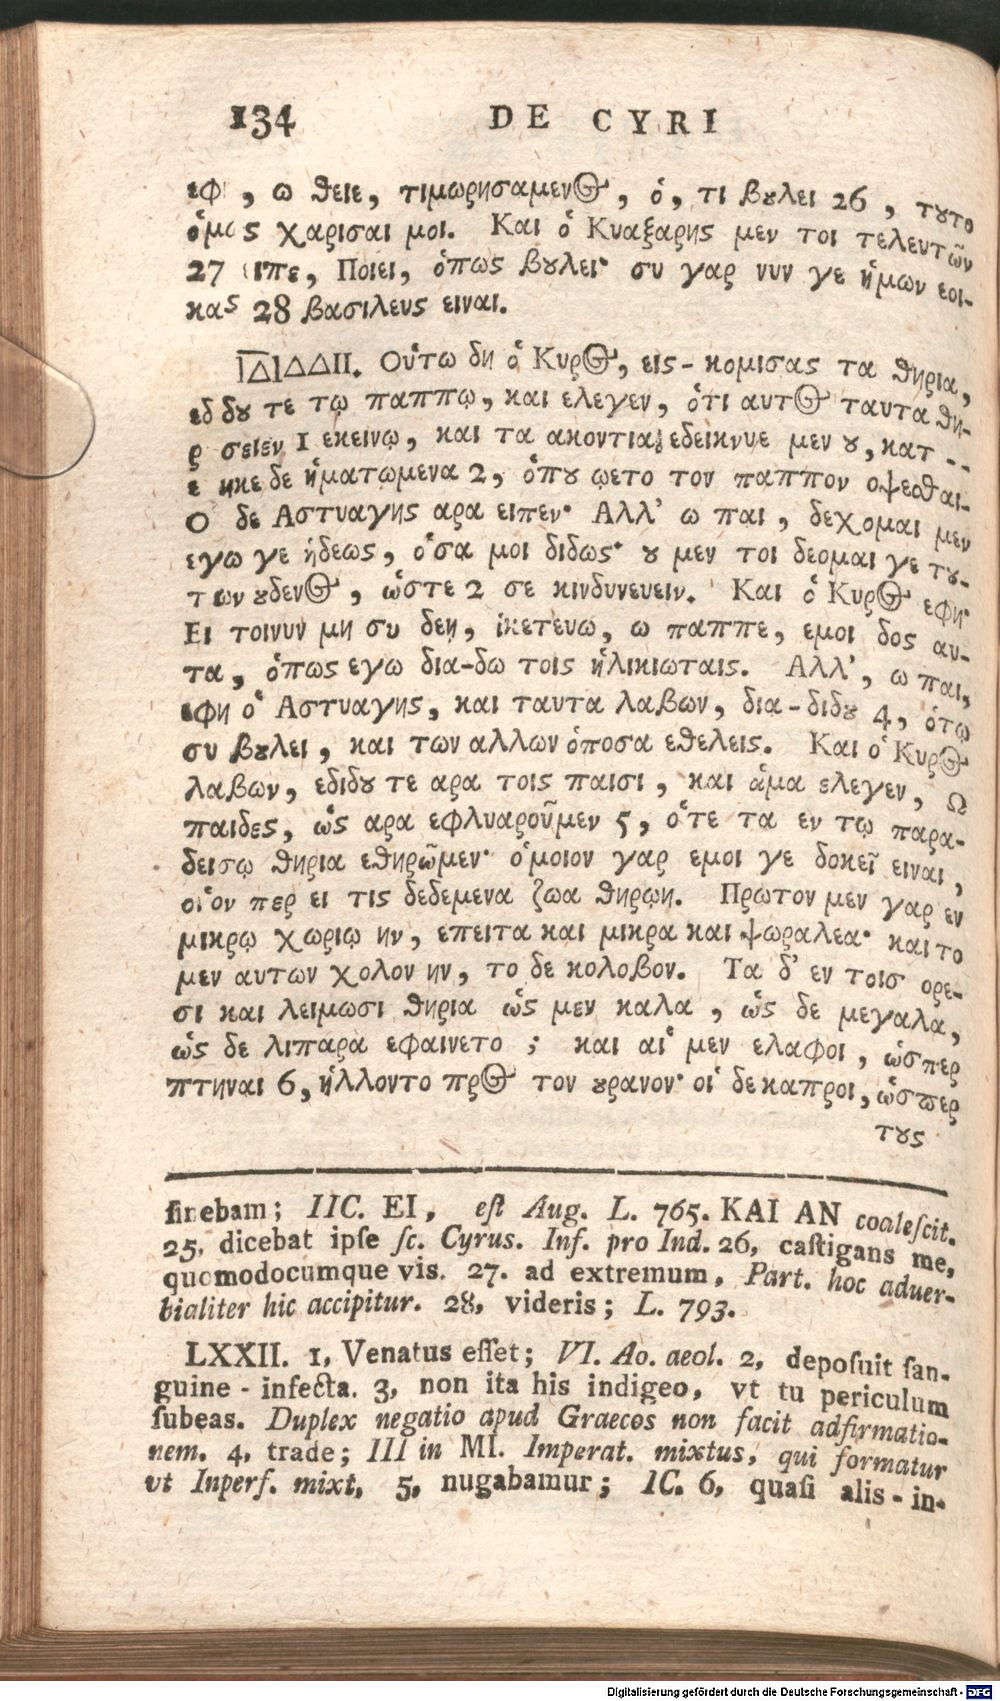 134 DE CYRI
εφ , ω θειε, τιμωρησαμενος, ὁ, τι βȣλει 26, τȣτο
ὁμως χαρισαι μοι. Και ὁ Κυαξαρης μεν τοι τελευτῶν
27 ειπε, Ποιει, ὁπως βȣλει· συ γαρ νυν γε ἡμων εοι-
κας 28 βασιλευς ειναι.
ΔΔΙΙ. Οὑτω δη ὁ Κυρος, εις-κομισας τα θηρια,
εδ δȣ τε τῳ παππῳ, και ελεγεν, ὁτι αυτος ταυτα θη-
ρ σειεν 1 εκεινῳ, και τα ακοντια εδεικνυε μεν ȣ, κατ --
ε ηκε δε ἡματωμενα 2, ὁπȣ ῳετο τον παππον οψεσθαι.
Ο δε Αστυαγης αρα ειπεν· Αλλ' ω παι, δεχομαι μεν
εγω γε ἡδεως, ὁσα μοι διδως· ȣ μεν τοι δεομαι γε τȣ-
των ȣδενος, ὡστε 2 σε κινδυνευειν. Και ὁ Κυρος εφη·
Ει τοινυν μη συ δεῃ, ἱκετευω, ω παππε, εμοι δος αυ-
τα, ὁπως εγω δια-δω τοις ἡλικιωταις. Αλλ', ω παι,
εφη ὁ Αστυαγης, και ταυτα λαβων, δια-διδȣ 4, ὁτῳ
συ βȣλει, και των αλλων ὁποσα εθελεις. Και ὁ Κυρος
λαβων, εδιδȣ τε αρα τοις παισι, και ἁμα ελεγεν, Ω
παιδες, ὡς αρα εφλυαροῦμεν 5, ὁτε τα εν τῳ παρα-
δεισῳ θηρια εθηρῶμεν· ὁμοιον γαρ εμοι γε δοκεῖ ειναι,
οἱον περ ει τις δεδεμενα ζωα θηρῳη. Πρωτον μεν γαρ εν
μικρῳ χωριῳ ην, επειτα και μικρα και ψωραλεα· και το
μεν αυτων χολον ην, το δε κολοβον. Τα δ' εν τοις ορε-
σι και λειμωσι θηρια ὡς μεν καλα, ὡς δε μεγαλα,
ὡς δε λιπαρα εφαινετο ; και αἱ μεν ελαφοι, ὡσπερ
πτηναι 6, ἡλλοντο προς τον ȣρανον· οἱ δε καπροι, ὡσπερ
τȣς
sinebam; IIC. EI, est Aug. L. 765. KAI AN coalescit.
25, dicebat ipse sc. Cyrus. Inf. pro Ind. 26, castigans me,
quomodocumque vis. 27. ad extremum, Part. hoc aduer-
bialiter hic accipitur. 28, videris; L. 793.
LXXII. 1, Venatus esset; VI. Ao. aeol. 2, deposuit san-
guine-infecta. 3, non ita his indigeo, vt tu periculum
subeas. Duplex negatio apud Graecos non facit adfirmatio-
nem. 4, trade; III in MI. Imperat. mixtus, qui formatur
vt Inperf. mixt. 5, nugabamur; IC. 6, quasi alis-in-
Digitalisierung gefördert durch die Deutsche Forschungsgemeinschaft - DFG